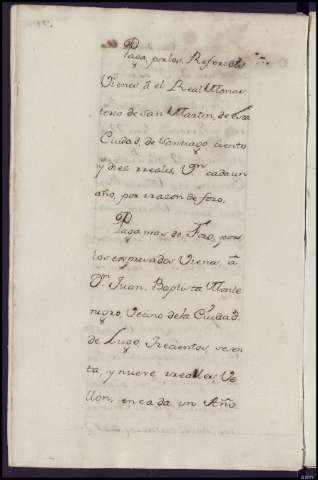 Paga, por los Referidos
Vienes â el Real Monas
terio de San Martin, de la
Ciudad, de Santiago, ciento
y diez rreales, Vn cada un
año, por rrazon de foro.
Paga mas de Foro, por
los expresados Vienes, â
Dn. Juan, Baptista Monte
negro, Vecino de la Ciudad.
de Lugo, Trecientos, sesen
ta, y nueve rreales, Ve
llon, en cada un Año